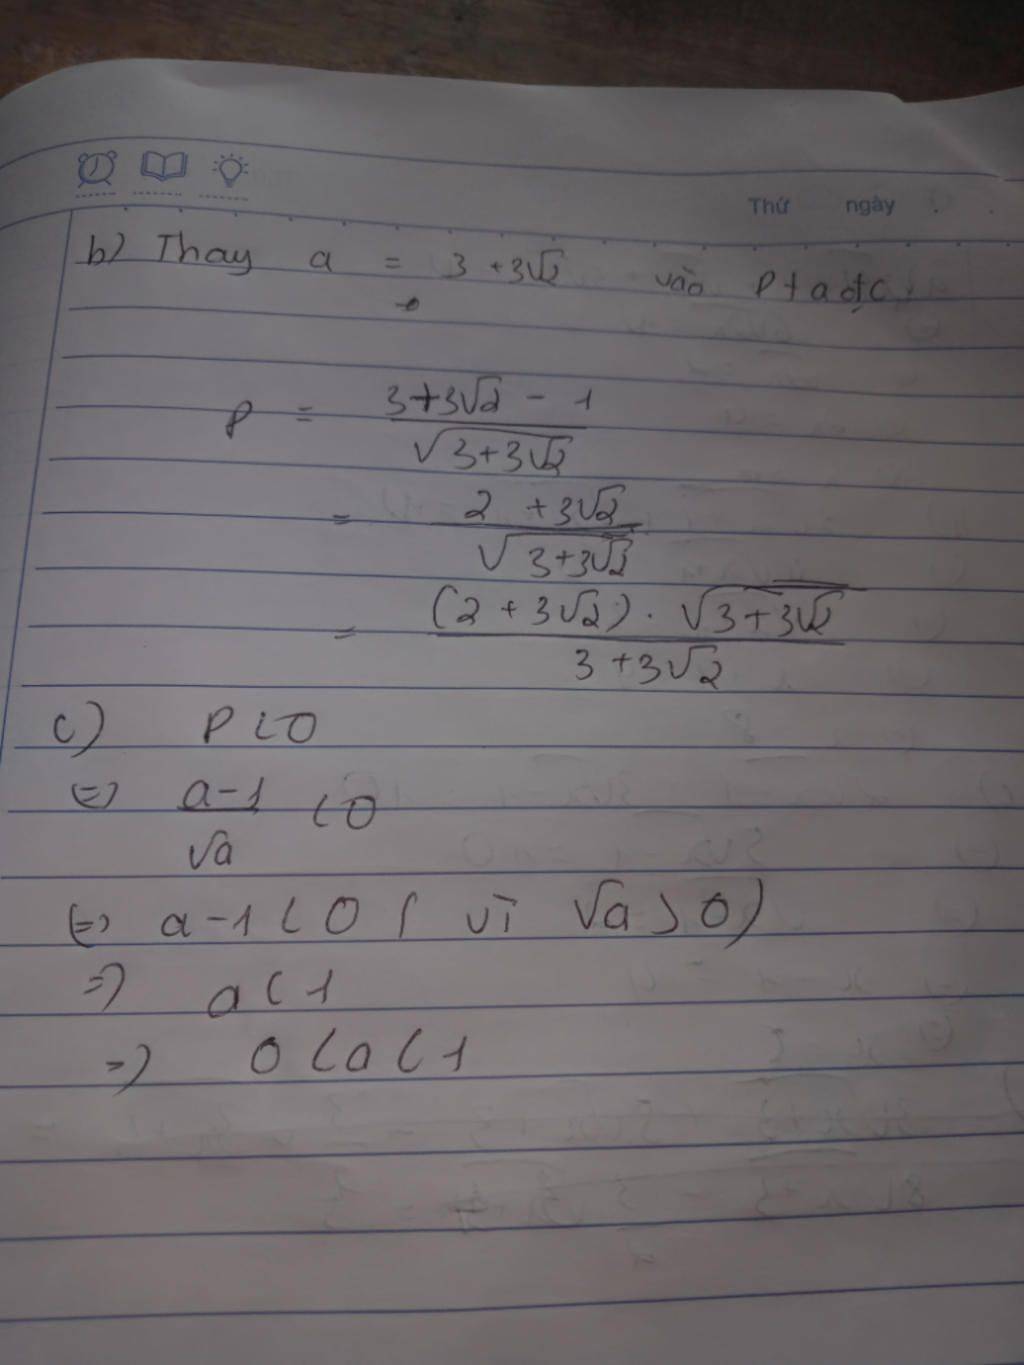 Thứ ngày
b) Thay a = 3 + 3√2 vào P ta đc
P = (3+3√2 - 1)/√(3+3√2)
= (2 + 3√2)/√(3+3√2)
= ((2 + 3√2) . √(3+3√2))/(3 + 3√2)
c) P < 0
<=> (a-1)/√a < 0
<=> a-1 < 0 ( vì √a > 0)
=> a < 1
=> 0 < a < 1